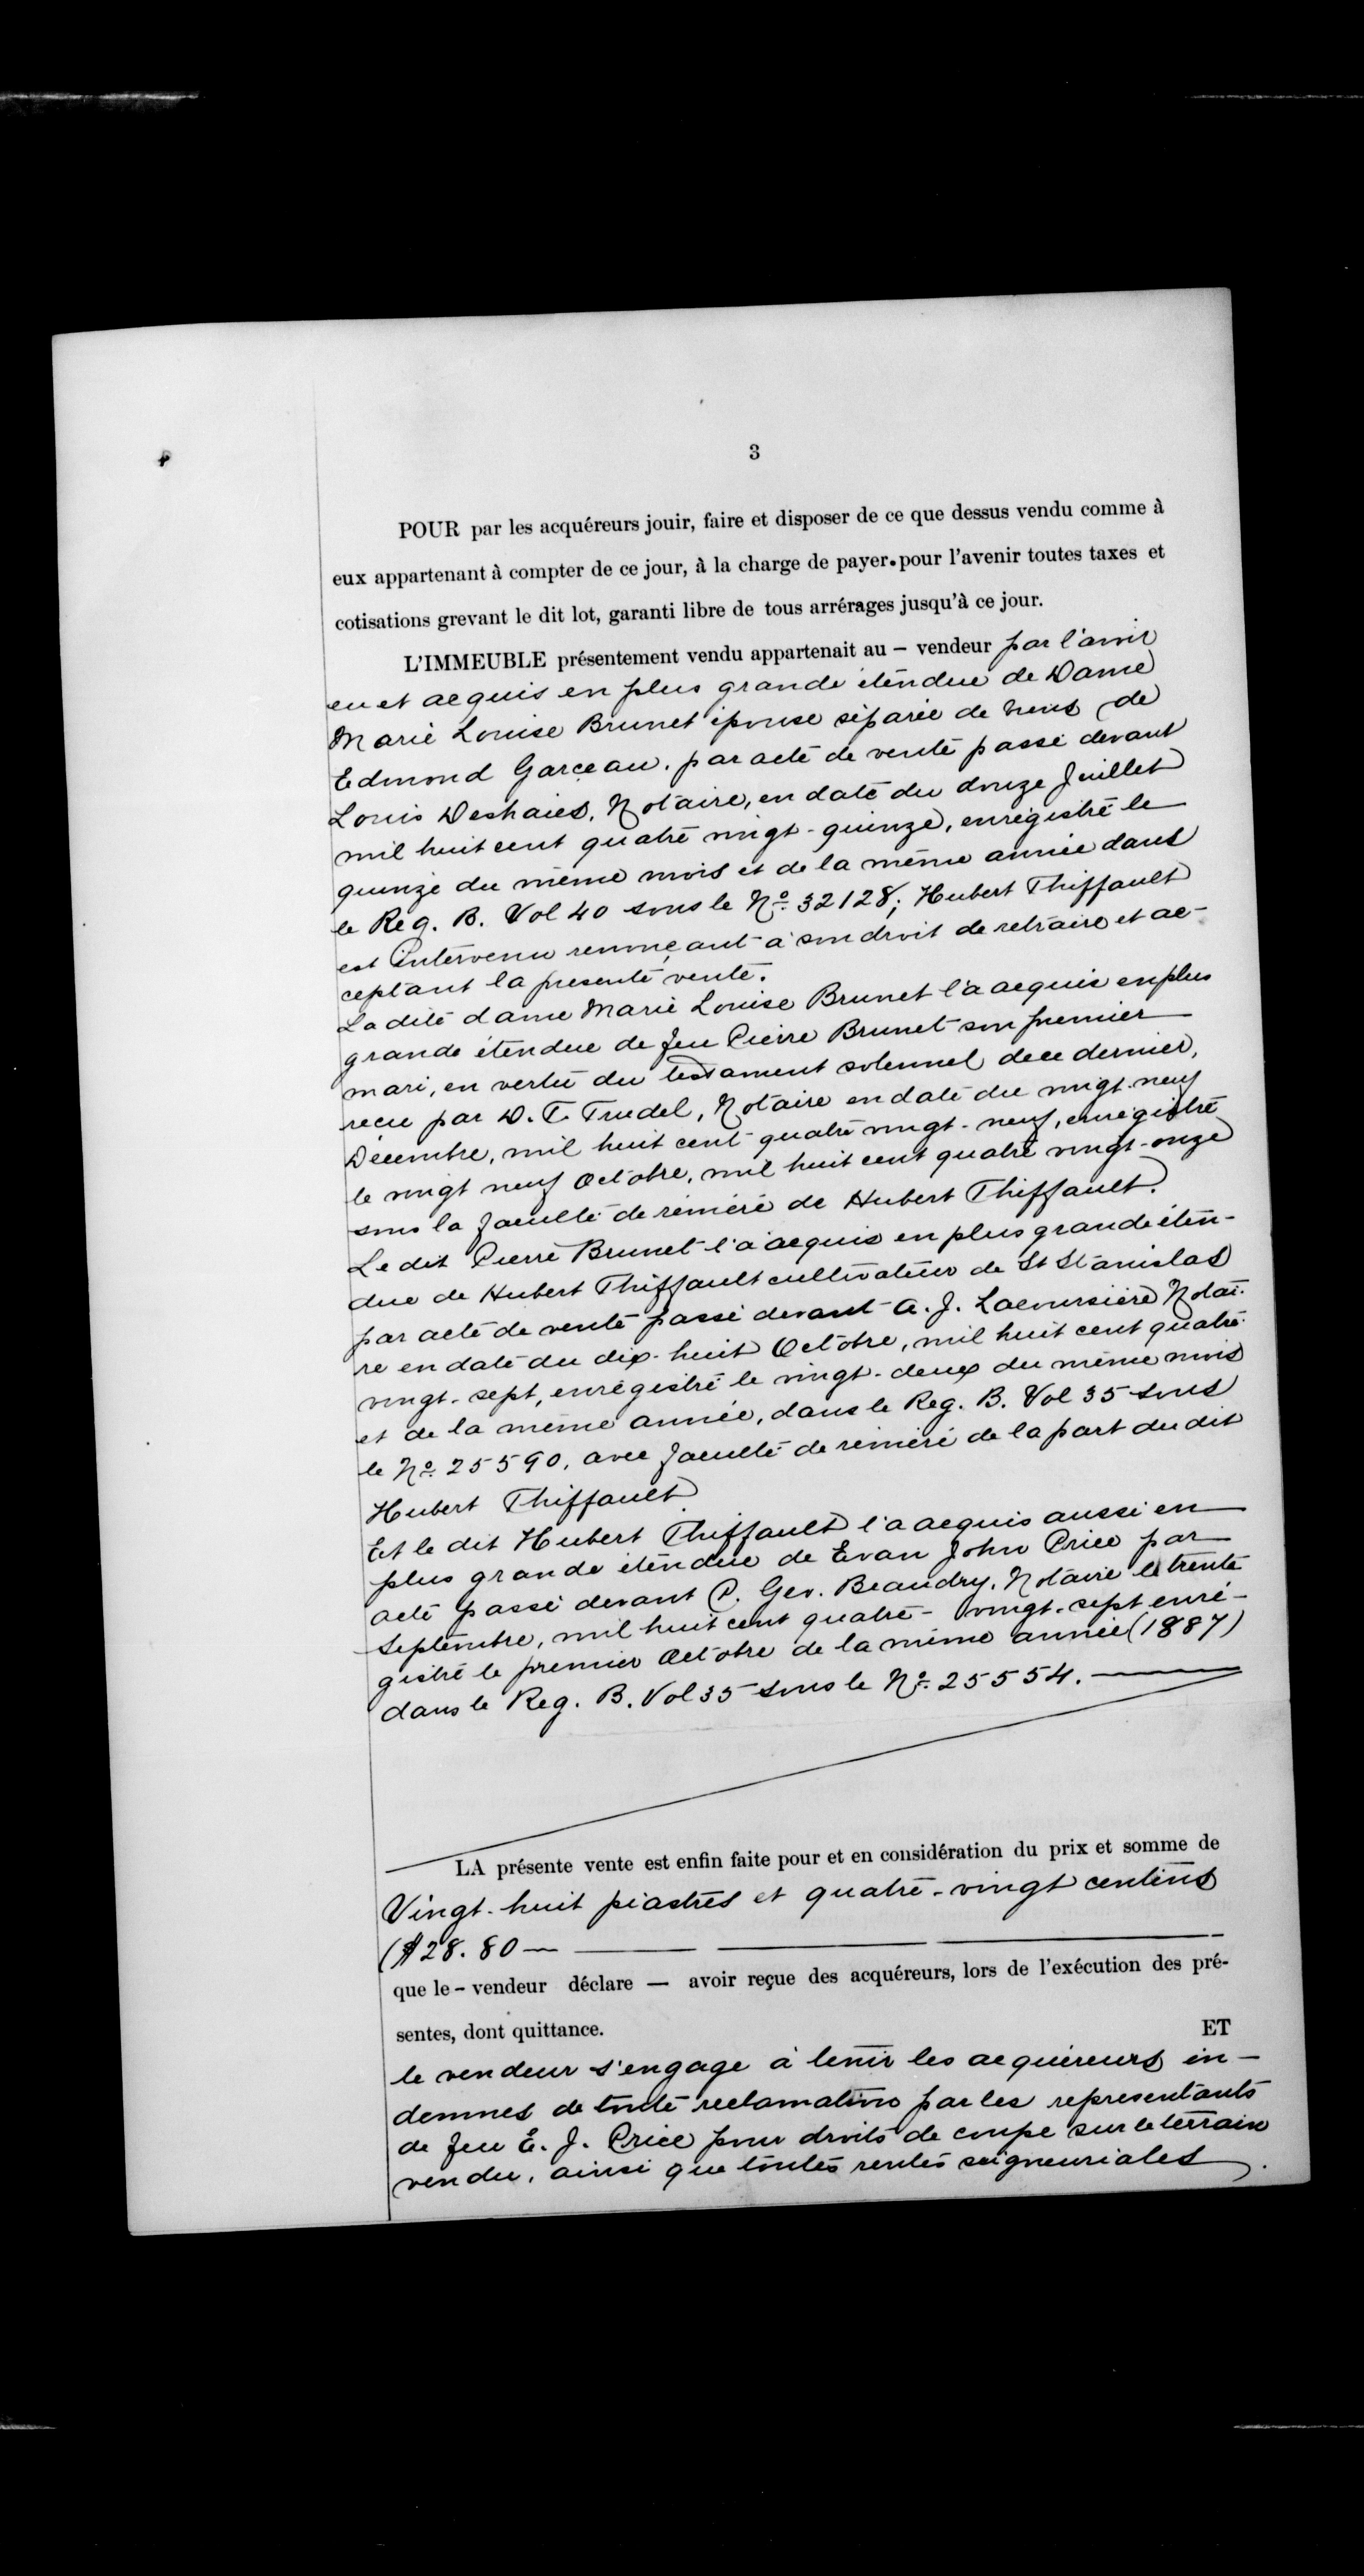 3
POUR par les acquéreurs jouir, faire et disposer de ce que dessus vendu comme à
eux appartenant à compter de ce jour, à la charge de payer.pour l'avenir toutes taxes et
cotisations grevant le dit lot, garanti libre de tous arrérages jusqu'à ce jour.
L'IMMEUBLE présentement vendu appartenait au – vendeur par l'avoir
eu et acquis en plus grande étendue de Dame
Marie Louise Brunet épouse séparée de biens de
Edmond Garceau, par acte de vente passé devant
Louis Deshaies, Notaire, en date du douze Juillet
mil huit cent quatre vingt-quinze, enrégistré le
quinze du même mois et de la même année dans
le Reg. B. Vol 40 sous le No. 32128; Hubert Thiffault
est intervenu renonçant à son droit de retraire et ac-
ceptant la presente vente.
La dite dame Marie Louise Brunet l'a acquis en plus
grande étendue de feu Pierre Brunet son premier
mari, en vertu du testament solennel de ce dernier,
reçu par D. T. Trudel, Notaire en date du vingt-neuf
Décembre, mil huit cent quatre vingt-neuf, enrégistré
le vingt neuf Octobre, mil huit cent quatre vingt-onze
sous la faculté de réméré de Hubert Thiffault.
Le dit Pierre Brunet l'a acquis en plus grande éten-
due de Hubert Thiffault cultivateur de St Stanislas
par acte de vente passé devant A. J. Lacoursière Notai-
re en date du dix-huit Octobre, mil huit cent quatre
vingt-sept, enrégistré le vingt-deux du même mois
et de la même année, dans le Reg. B. Vol 35 sous
le No. 25590, avec faculté de réméré de la part du dit
Hubert Thiffault
Et le dit Hubert Thiffault l'a acquis aussi en
plus grande étendue de Evan John Price par
acte passé devant P. Gev. Beaudry, Notaire le trente
Septembre, mil huit cent quatre-vingt-sept enré-
gistré le premier Octobre de la même année (1887)
dans le Reg. B. Vol 35 sous le No. 25554.
LA présente vente est enfin faite pour et en considération du prix et somme de
Vingt-huit piastres et quatre-vingt centins
($28.80—
que le – vendeur déclare — avoir reçue des acquéreurs, lors de l'exécution des pré-
sentes, dont quittance. ET
le vendeur s'engage à tenir les acquéreurs in-
demnes de toute reclamation par les representants
de feu E. J. Price pour droits de coupe sur le terrain
vendu, ainsi que toutes rentes seigneuriales.